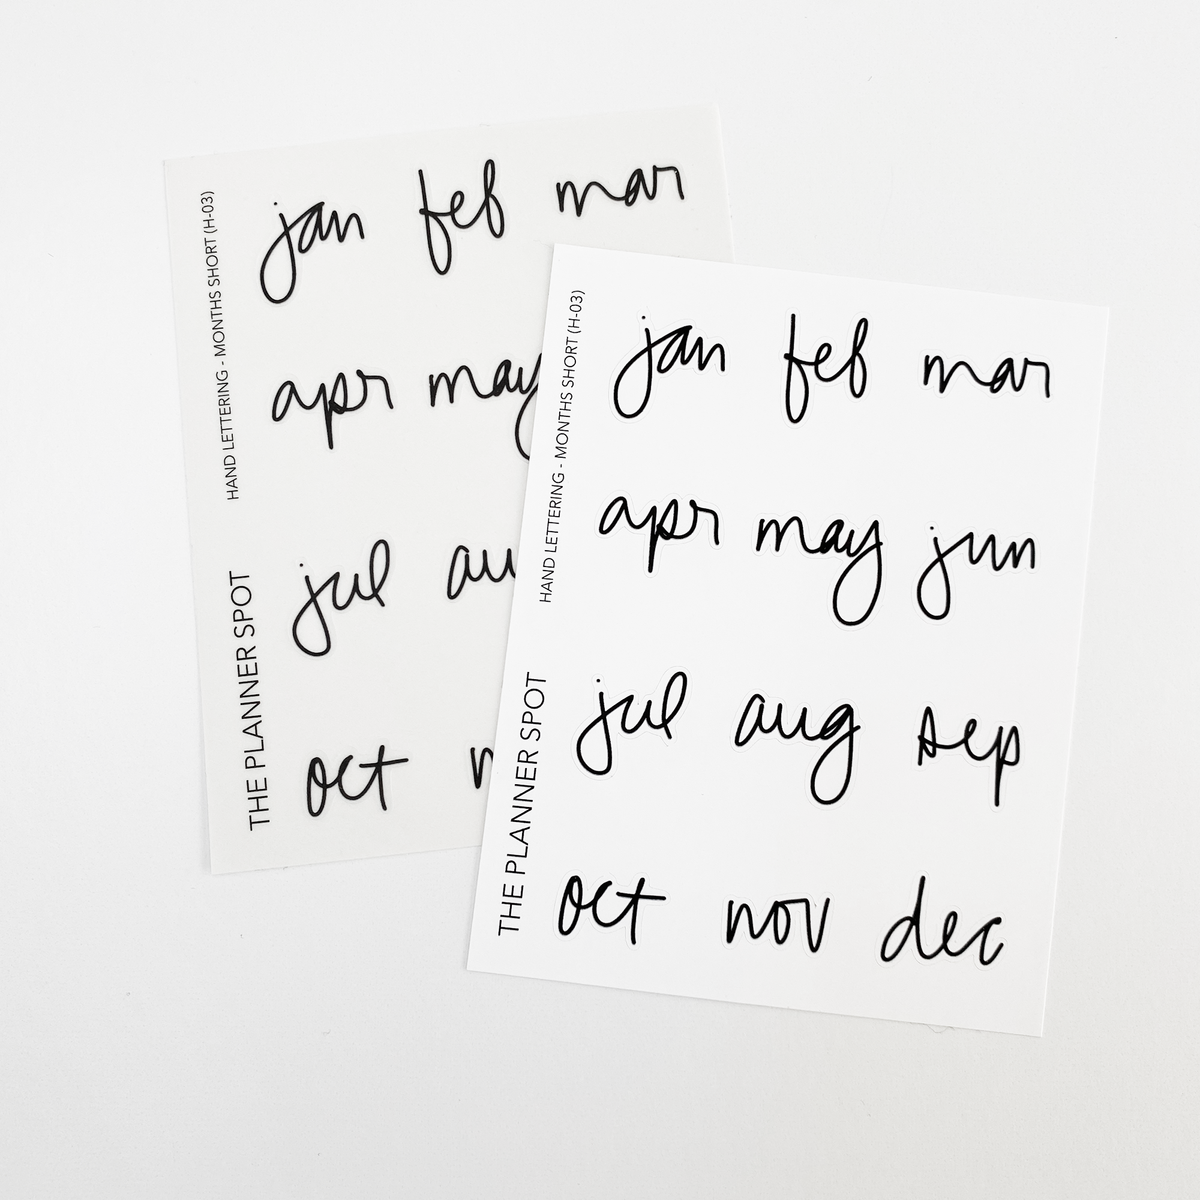 HAND LETTERING - MONTHS SHORT (H-03)
THE PLANNER SPOT
jan feb mar
apr may
jul au
oct n
HAND LETTERING - MONTHS SHORT (H-03)
THE PLANNER SPOT
jan feb mar
apr may jun
jul aug sep
oct nov dec